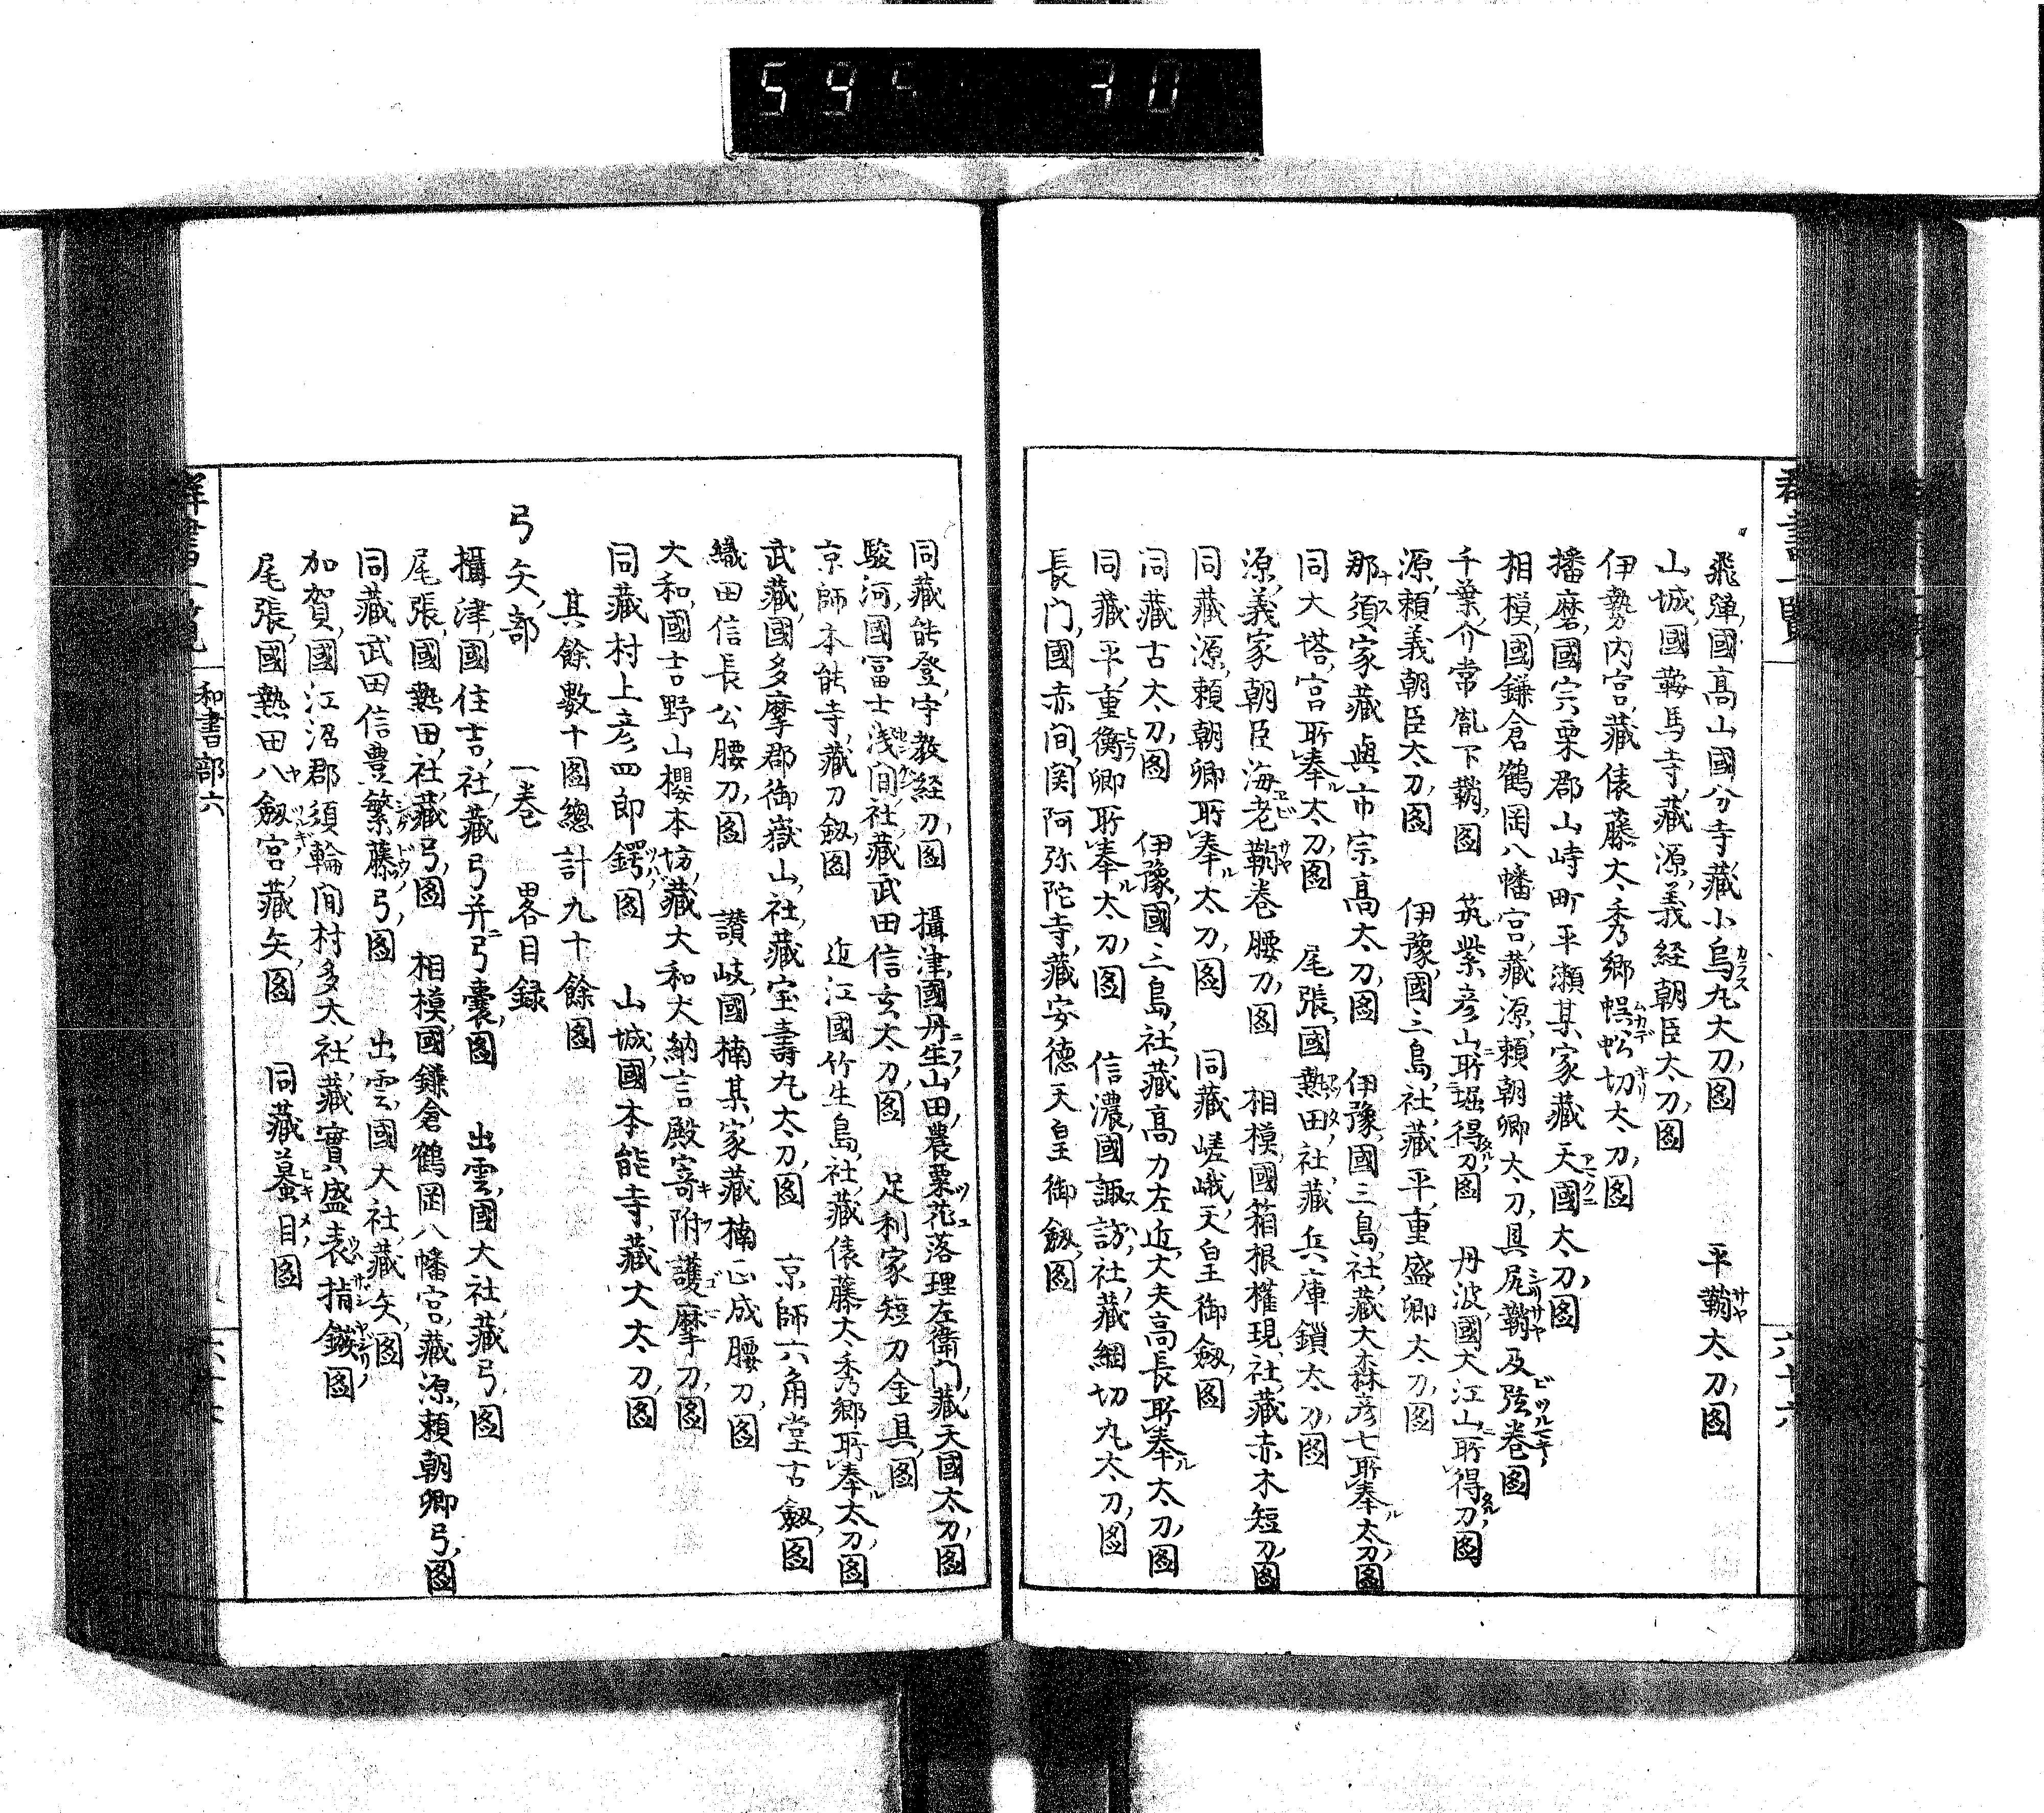 飛驒國高山國分寺藏小烏丸大刀圖　平鞘太刀圖
山城國鞍馬寺藏源義経朝臣太刀圖
伊勢内宮藏俵藤太秀郷蜈蚣切太刀圖
播磨國宍粟郡山崎町平瀬某家藏天國太刀圖
相模國鎌倉鶴岡八幡宮藏源頼朝卿太刀具尻鞘及弦巻圖
千葉介常胤下鞘圖　筑紫彦山所堀得刀圖　丹波國大江山所得刀圖
源頼義朝臣太刀圖　伊豫國三島社藏平重盛卿太刀圖
那須家藏與市宗高太刀圖　伊豫國三島社藏大森彦七所奉太刀圖
同大塔宮所奉太刀圖　尾張國熱田社藏兵庫鎖太刀圖
源義家朝臣海老鞘巻腰刀圖　相模國箱根権現社藏赤木短刀圖
同藏源頼朝卿所奉太刀圖　同藏嵯峨天皇御劔圖
同藏古太刀圖　伊豫國三島社藏高力左近大夫高長所奉太刀圖
同藏平重衡卿所奉太刀圖　信濃國諏訪社藏綱切丸太刀圖
長门國赤间関阿弥陀寺藏安徳天皇御劔圖
同藏能登守教経刀圖　攝津國丹生山田農粟花落理左衛门藏天國太刀圖
駿河國冨士浅间社藏武田信玄太刀圖　足利家短刀金具圖
京師本能寺藏刀劔圖　近江國竹生島社藏俵藤太秀郷所奉太刀圖
武藏國多摩郡御嶽山社藏宝壽丸太刀圖　京師六角堂古劔圖
織田信長公腰刀圖　讃岐國楠某家藏楠正成腰刀圖
大和國吉野山櫻本坊藏大和大納言殿寄附護摩刀圖
同藏村上彦四郎鍔圖　山城國本能寺藏大太刀圖
其餘數十圖總計九十餘圖
弓矢部　一巻　畧目録
攝津國住吉社藏弓并弓囊圖　出雲國大社藏弓圖
尾張國熱田社藏弓圖　相模國鎌倉鶴岡八幡宮藏源頼朝卿弓圖
同藏武田信豊繁藤弓圖　出雲國大社藏矢圖
加賀國江沼郡須輪间村多太社藏實盛表指鏃圖
尾張國熱田八劔宮藏矢圖　同藏蟇目圖
和書部六